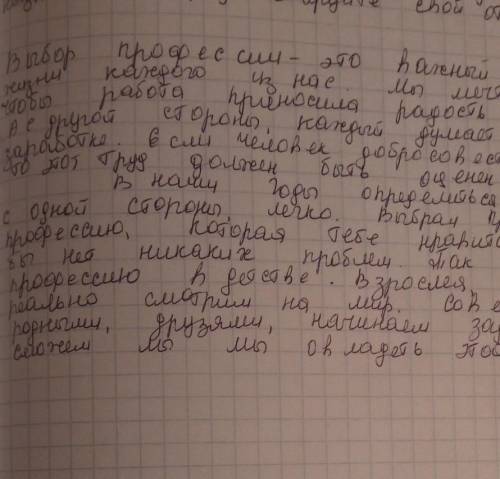 свой от
Выбор профессии - это важный
жизни каждого из нас. Мы меч
чтобы работа приносила радость
А с другой стороны, каждый думает
заработке. Если человек добросовест
то этот труд должен быть оценен
В наши годы определиться
с одной стороны, легко. Выбрал пр
профессию, которая тебе нравит
бы нет никаких проблем. Так
профессию в детстве. Взрослея,
реально смотрим на мир. Сове
родными, друзьями, начинаем зад
сможем мы мы овладеть этой